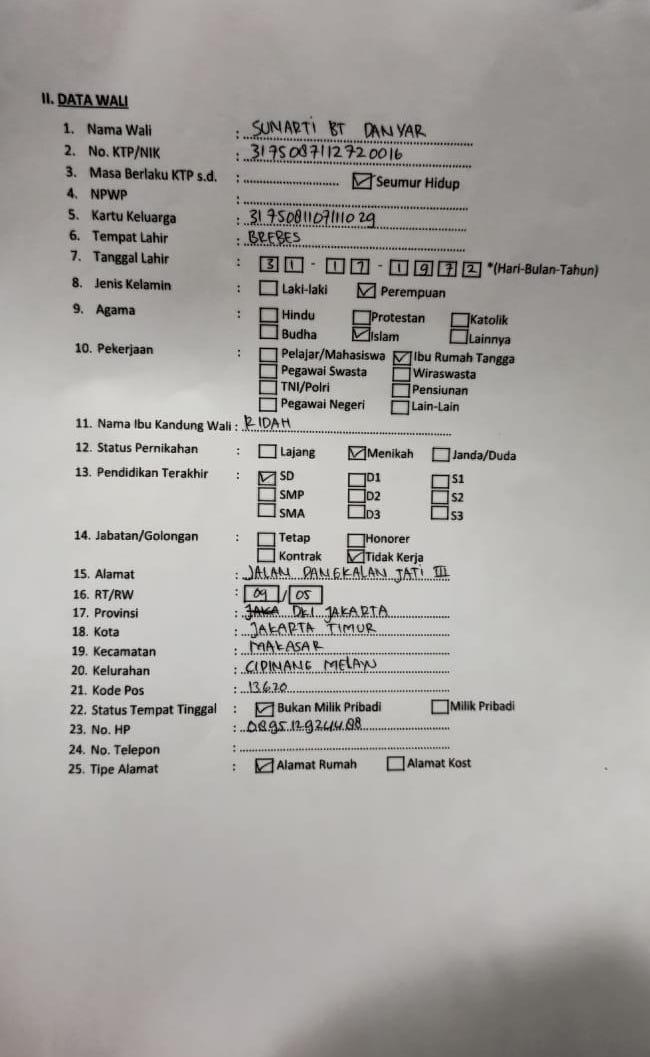 II. DATA WALI
1. Nama Wali : SUNARTI BT DANYAR
2. No. KTP/NIK : 3175087112720016
3. Masa Berlaku KTP s.d. : ☑ Seumur Hidup
4. NPWP :
5. Kartu Keluarga : 3175081107111029
6. Tempat Lahir : BREBES
7. Tanggal Lahir : 3 1 - 1 7 - 1 9 7 2 *(Hari-Bulan-Tahun)
8. Jenis Kelamin : ☐ Laki-laki ☑ Perempuan
9. Agama : ☐ Hindu ☐ Protestan ☐ Katolik
☐ Budha ☑ Islam ☐ Lainnya
10. Pekerjaan : ☐ Pelajar/Mahasiswa ☑ Ibu Rumah Tangga
☐ Pegawai Swasta ☐ Wiraswasta
☐ TNI/Polri ☐ Pensiunan
☐ Pegawai Negeri ☐ Lain-Lain
11. Nama Ibu Kandung Wali : RIDAH
12. Status Pernikahan : ☐ Lajang ☑ Menikah ☐ Janda/Duda
13. Pendidikan Terakhir : ☑ SD ☐ D1 ☐ S1
☐ SMP ☐ D2 ☐ S2
☐ SMA ☐ D3 ☐ S3
14. Jabatan/Golongan : ☐ Tetap ☐ Honorer
☐ Kontrak ☑ Tidak Kerja
15. Alamat : JALAN PANGKALAN JATI III
16. RT/RW : 09 / 05
17. Provinsi : JAKA DKI JAKARTA
18. Kota : JAKARTA TIMUR
19. Kecamatan : MAKASAR
20. Kelurahan : CIPINANG MELAYU
21. Kode Pos : 13620
22. Status Tempat Tinggal : ☑ Bukan Milik Pribadi ☐ Milik Pribadi
23. No. HP : 0895129244.88
24. No. Telepon :
25. Tipe Alamat : ☑ Alamat Rumah ☐ Alamat Kost